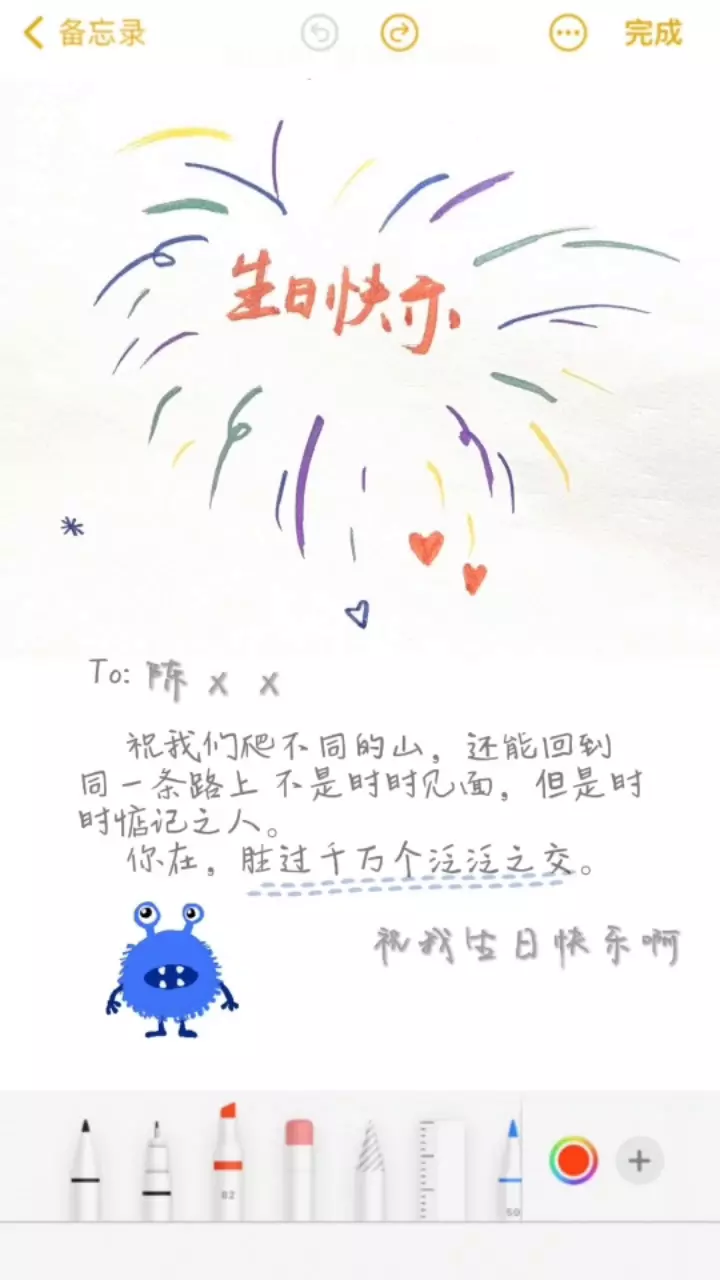 备忘录
完成
生日快乐
To: 陈 x x
祝我们爬不同的山，还能回到
同一条路上 不是时时见面，但是时
时惦记之人。
你在，胜过千万个泛泛之交。
祝我生日快乐啊
82
50